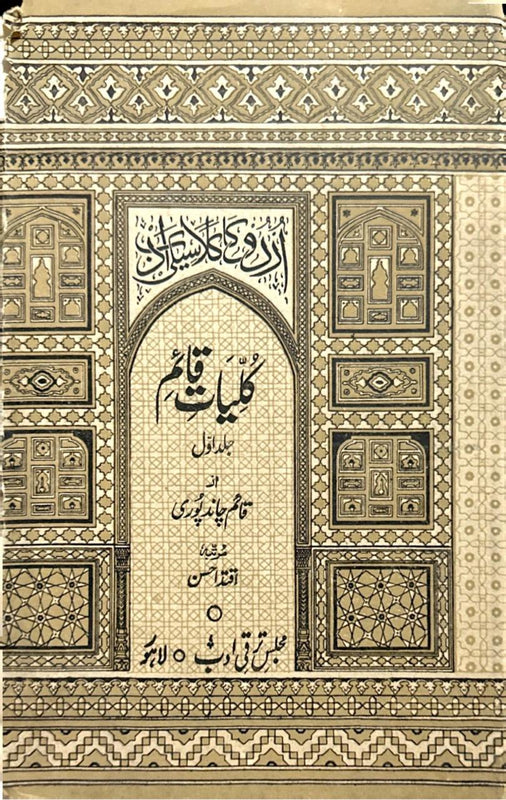 اُردُو کا کلاسیکی ادب
کُلّیاتِ قائم
جلد اوّل
از
قائم چاند پُوری
مرتّبہ
اقتدا حسن
مجلس ترقی ادب ○ لاہور